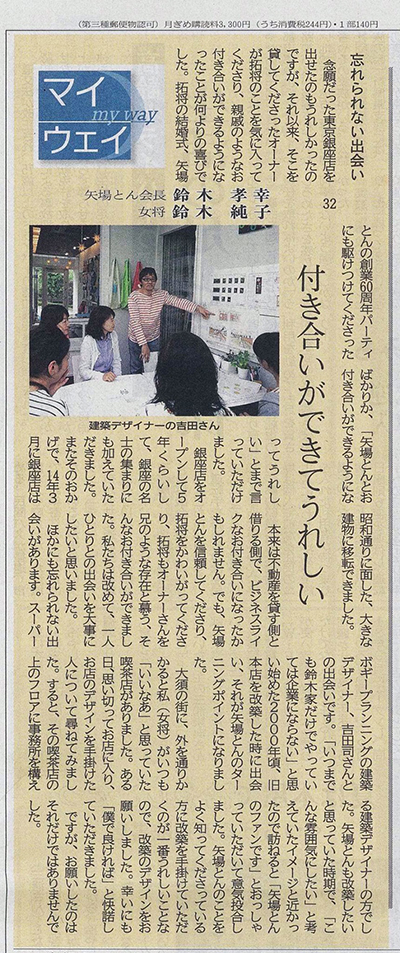 （第三種郵便物認可）月ぎめ購読料3,300円（うち消費税244円）・1部140円
マイ
my way
ウェイ
矢場とん会長 鈴木 孝幸
女将 鈴木 純子
32
付き合いができてうれしい
忘れられない出会い
念願だった東京銀座店を
出せたのもうれしかったの
ですが、それ以来、そこを
貸してくださったオーナー
が拓将のことを気に入って
くださり、親戚のようなお
付き合いができるようにな
ったことが何よりの喜びで
した。拓将の結婚式、矢場
とんの創業60周年パーティ
にも駆けつけてくださった
ばかりか、「矢場とんとお
付き合いができるようにな
ってうれし
い」とまで言
っていただけ
ました。
銀座店をオ
ープンして5
年くらいし
て、銀座の名
士の集まりに
も加えていた
だきました。
またそのおか
げで、14年3
月に銀座店は
昭和通りに面した、大きな
建物に移転できました。
本来は不動産を貸す側と
借りる側で、ビジネスライ
クなお付き合いになったか
もしれません。でも、矢場
とんを信頼してくださり、
拓将をかわいがってくださ
り、拓将もオーナーさんを
兄のような存在と慕う、そ
んなお付き合いができまし
た。私たちは改めて、一人
ひとりとの出会いを大事に
したいと思いました。
ほかにも忘れられない出
会いがあります。スーパー
ボギープランニングの建築
デザイナー、吉田司さんと
の出会いです。「いつまで
も鈴木家だけでやってい
ては企業にならない」と思
い始めた2000年頃、旧
本店を改築した時に出会
い、それが矢場とんのター
ニングポイントになりまし
た。
大須の街に、外を通りか
かると私（女将）がいつも
「いいなあ」と思っていた
喫茶店がありました。ある
日、思い切ってお店に入り、
お店のデザインを手掛けた
人について尋ねてみまし
た。すると、その喫茶店の
上のフロアに事務所を構え
る建築デザイナーの方でし
た。矢場とんも改築したい
と思っていた時期で、「こ
んな雰囲気にしたい」と考
えていたイメージと近かっ
たので訪ねると「矢場とん
のファンです」とおっしゃ
っていただいて意気投合し
ました。矢場とんのことを
よく知ってくださっている
方に改築を手掛けていただ
くのが一番うれしいことな
ので、改築のデザインをお
願いしました。幸いにも
「僕で良ければ」と快諾し
ていただきました。
ですが、お願いしたのは
それだけではありませんで
した。
建築デザイナーの吉田さん